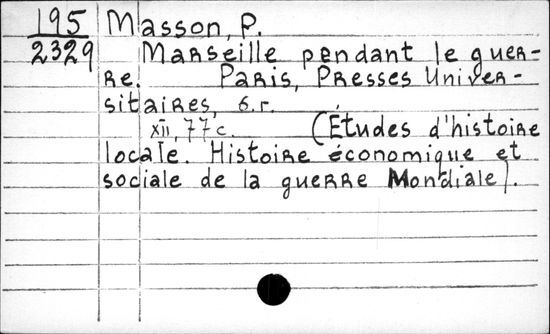 195 Masson, P.
2329 Marseille pendant le guer-
re. Paris, Presses Univer-
sitaires, б.г.
XII, 77 c. (Études d'histoire
locale. Histoire économique et
sociale de la guerre Mondiale).